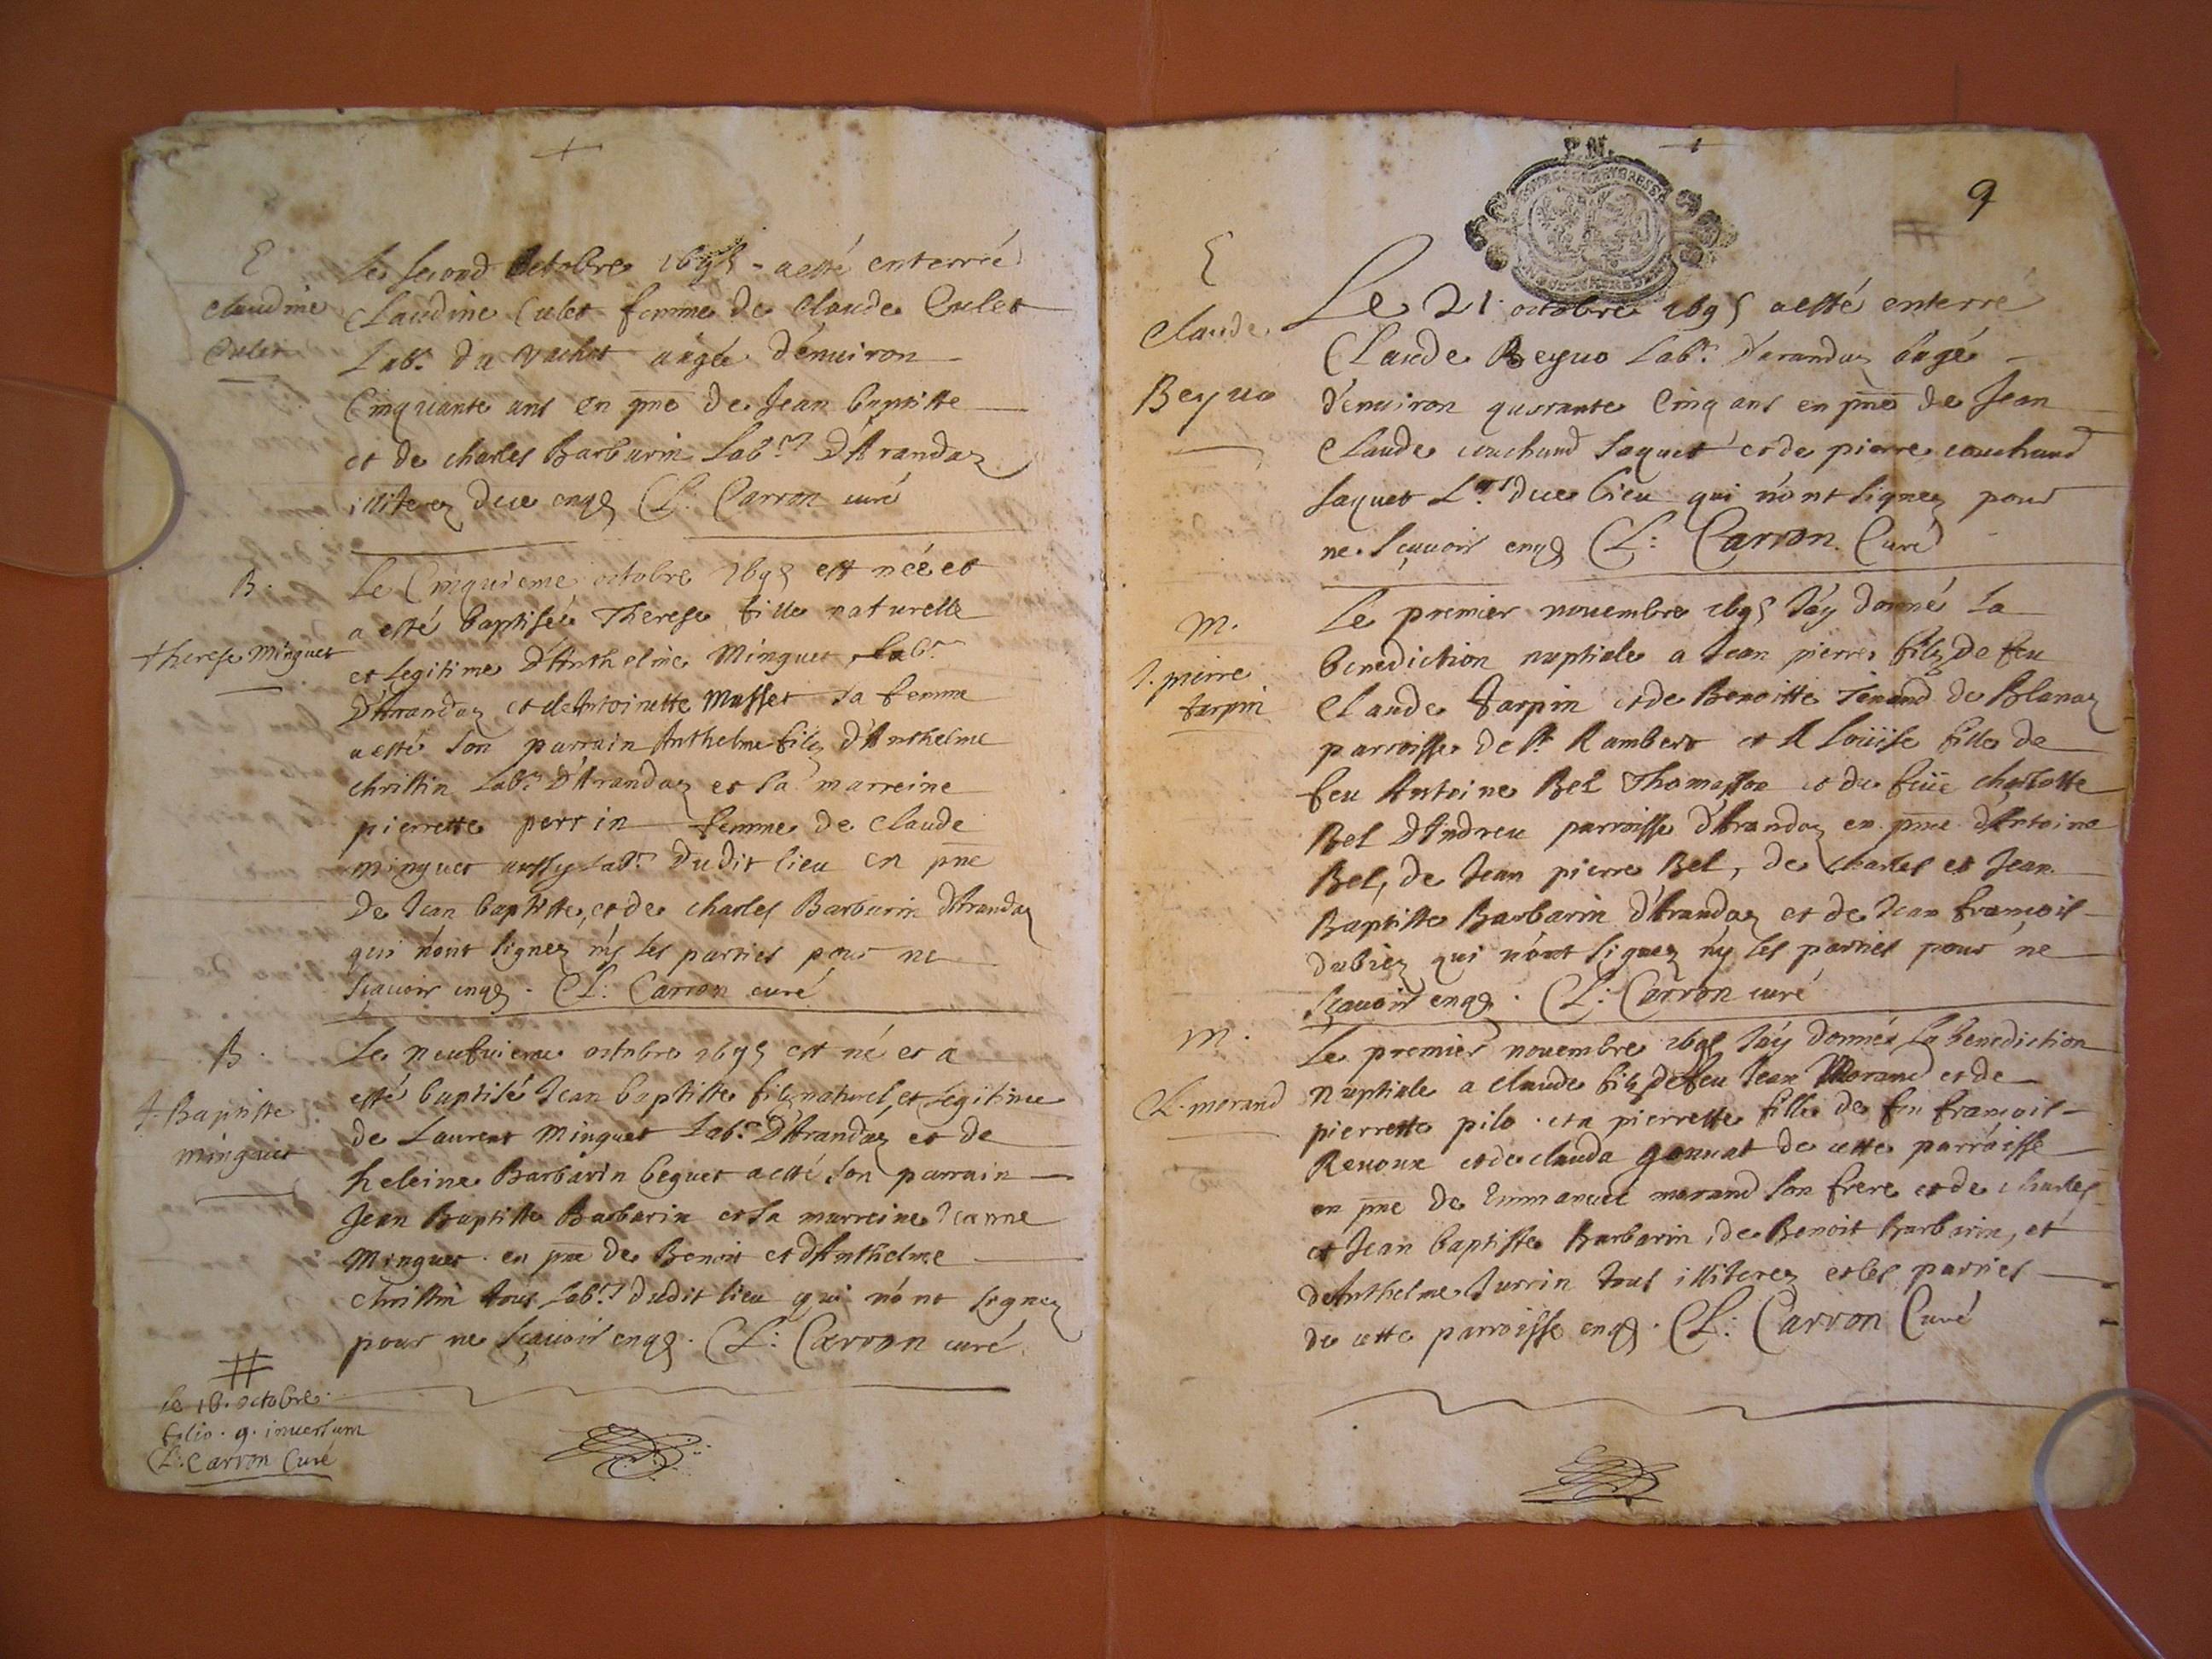 E
Claudine
Culet
Le second octobre 1695 a esté enterrée
Claudine Culet femme de Claude Culet
Labr. du Vachat aagée d'enuiron
Cinquante ans en pne de Jean baptiste
et de charles Barbarin Labrs D'Arandaz
illiterez enqs CL: Carron curé
B.
Therese Minguet
Le Cinquieme octobre 1695 est née et
a esté baptisée Therese fille naturelle
et legitime D'Anthelme Minguet Labr.
D'Arandaz et de Antoinette Musset sa femme
a esté son parrain Anthelme filz D'Anthelme
christin Labr. D'Arandaz et sa marreine
pierrette perrin femme de Claude
Minguet aussy Labr. Dudit lieu en pne
De Jean baptiste, et de charles Barbarin D'Arandaz
qui n'ont signez n'y les parties pour ne
sçauoir enqs. CL: Carron curé
B.
J. Baptiste
minguet
Le neufuieme octobre 1695 est né et a
esté baptisé Jean baptiste filz naturel, et legitime
de Laurent Minguet Labr. D'Arandaz et de
heleine Barbarin beguet a esté son parrain
Jean Baptiste Barbarin et sa marreine Jeanne
Minguet. en pne de Benoit et d'Anthelme
christin tous Labrs dudit lieu qui n'ont signez
pour ne sçauoir enqs. CL: Carron curé
#
le 18. octobre
folio. 9. inuersum
CL: Carron Curé
P M.
9
#
E
Claude
Beyuo
Le 21 octobre 1695 a esté enterré
Claude Beyuo Labr. D'arandaz aagé
d'enuiron quarante Cinq ans en pne de Jean
Claude couchaud Jaquet et de pierre couchaud
Jaquet Lrs lieu qui n'ont signez pour
ne sçauoir enqs CL: Carron Curé
M.
J. pierre
tarpin
Le premier nouembre 1695 J'ay donné la
benediction nuptiale a Jean pierre filz de feu
Claude Tarpin et de Benoitte Tenand de Blanaz
parroisse de St. Rambert et A Loüise fille de
feu Antoine Bel Thomasson et de feüe charlotte
Bel D'Andreu parroisse D'Arandaz en pne d'Antoine
Bel, de Jean pierre Bel, de Charles et Jean
Baptiste Barbarin D'Arandaz et de Jean françois
dubiez qui n'ont signez n'y les parties pour ne
sçauoir enqs. CL: Carron curé
M.
CL. morand
Le premier nouembre 1695 J'ay donné la benediction
nuptiale a claude filz de feu Jean Morand et de
pierrette pilo. et a pierrette fille de feu françois
Reuoux et de clauda gonnat de cette parroisse
en pne de Emmanuel morand son frere et de charles
et Jean baptiste Barbarin, de Benoit barbarin, et
de Anthelme Jurrin tous illiterez et les parties
de cette parroisse enqs. CL: Carron Curé